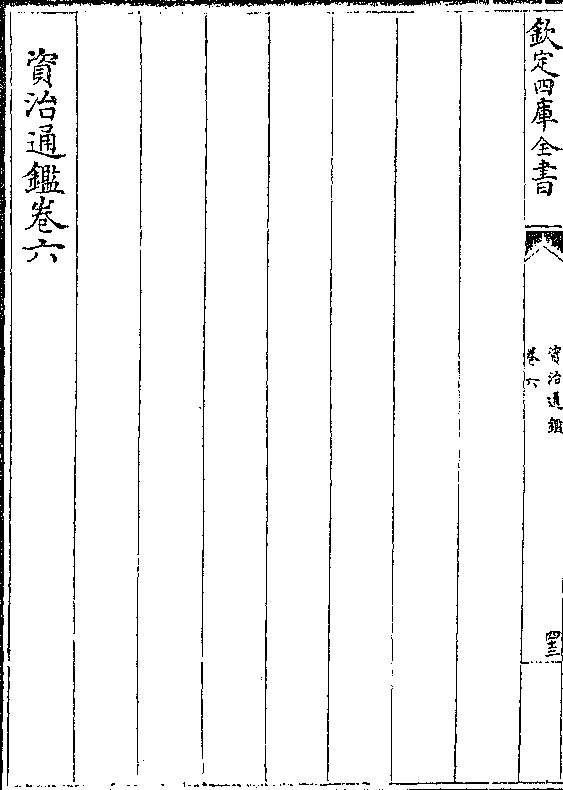 欽定四庫全書
資治通鑑
卷六
四十三
資治通鑑卷六